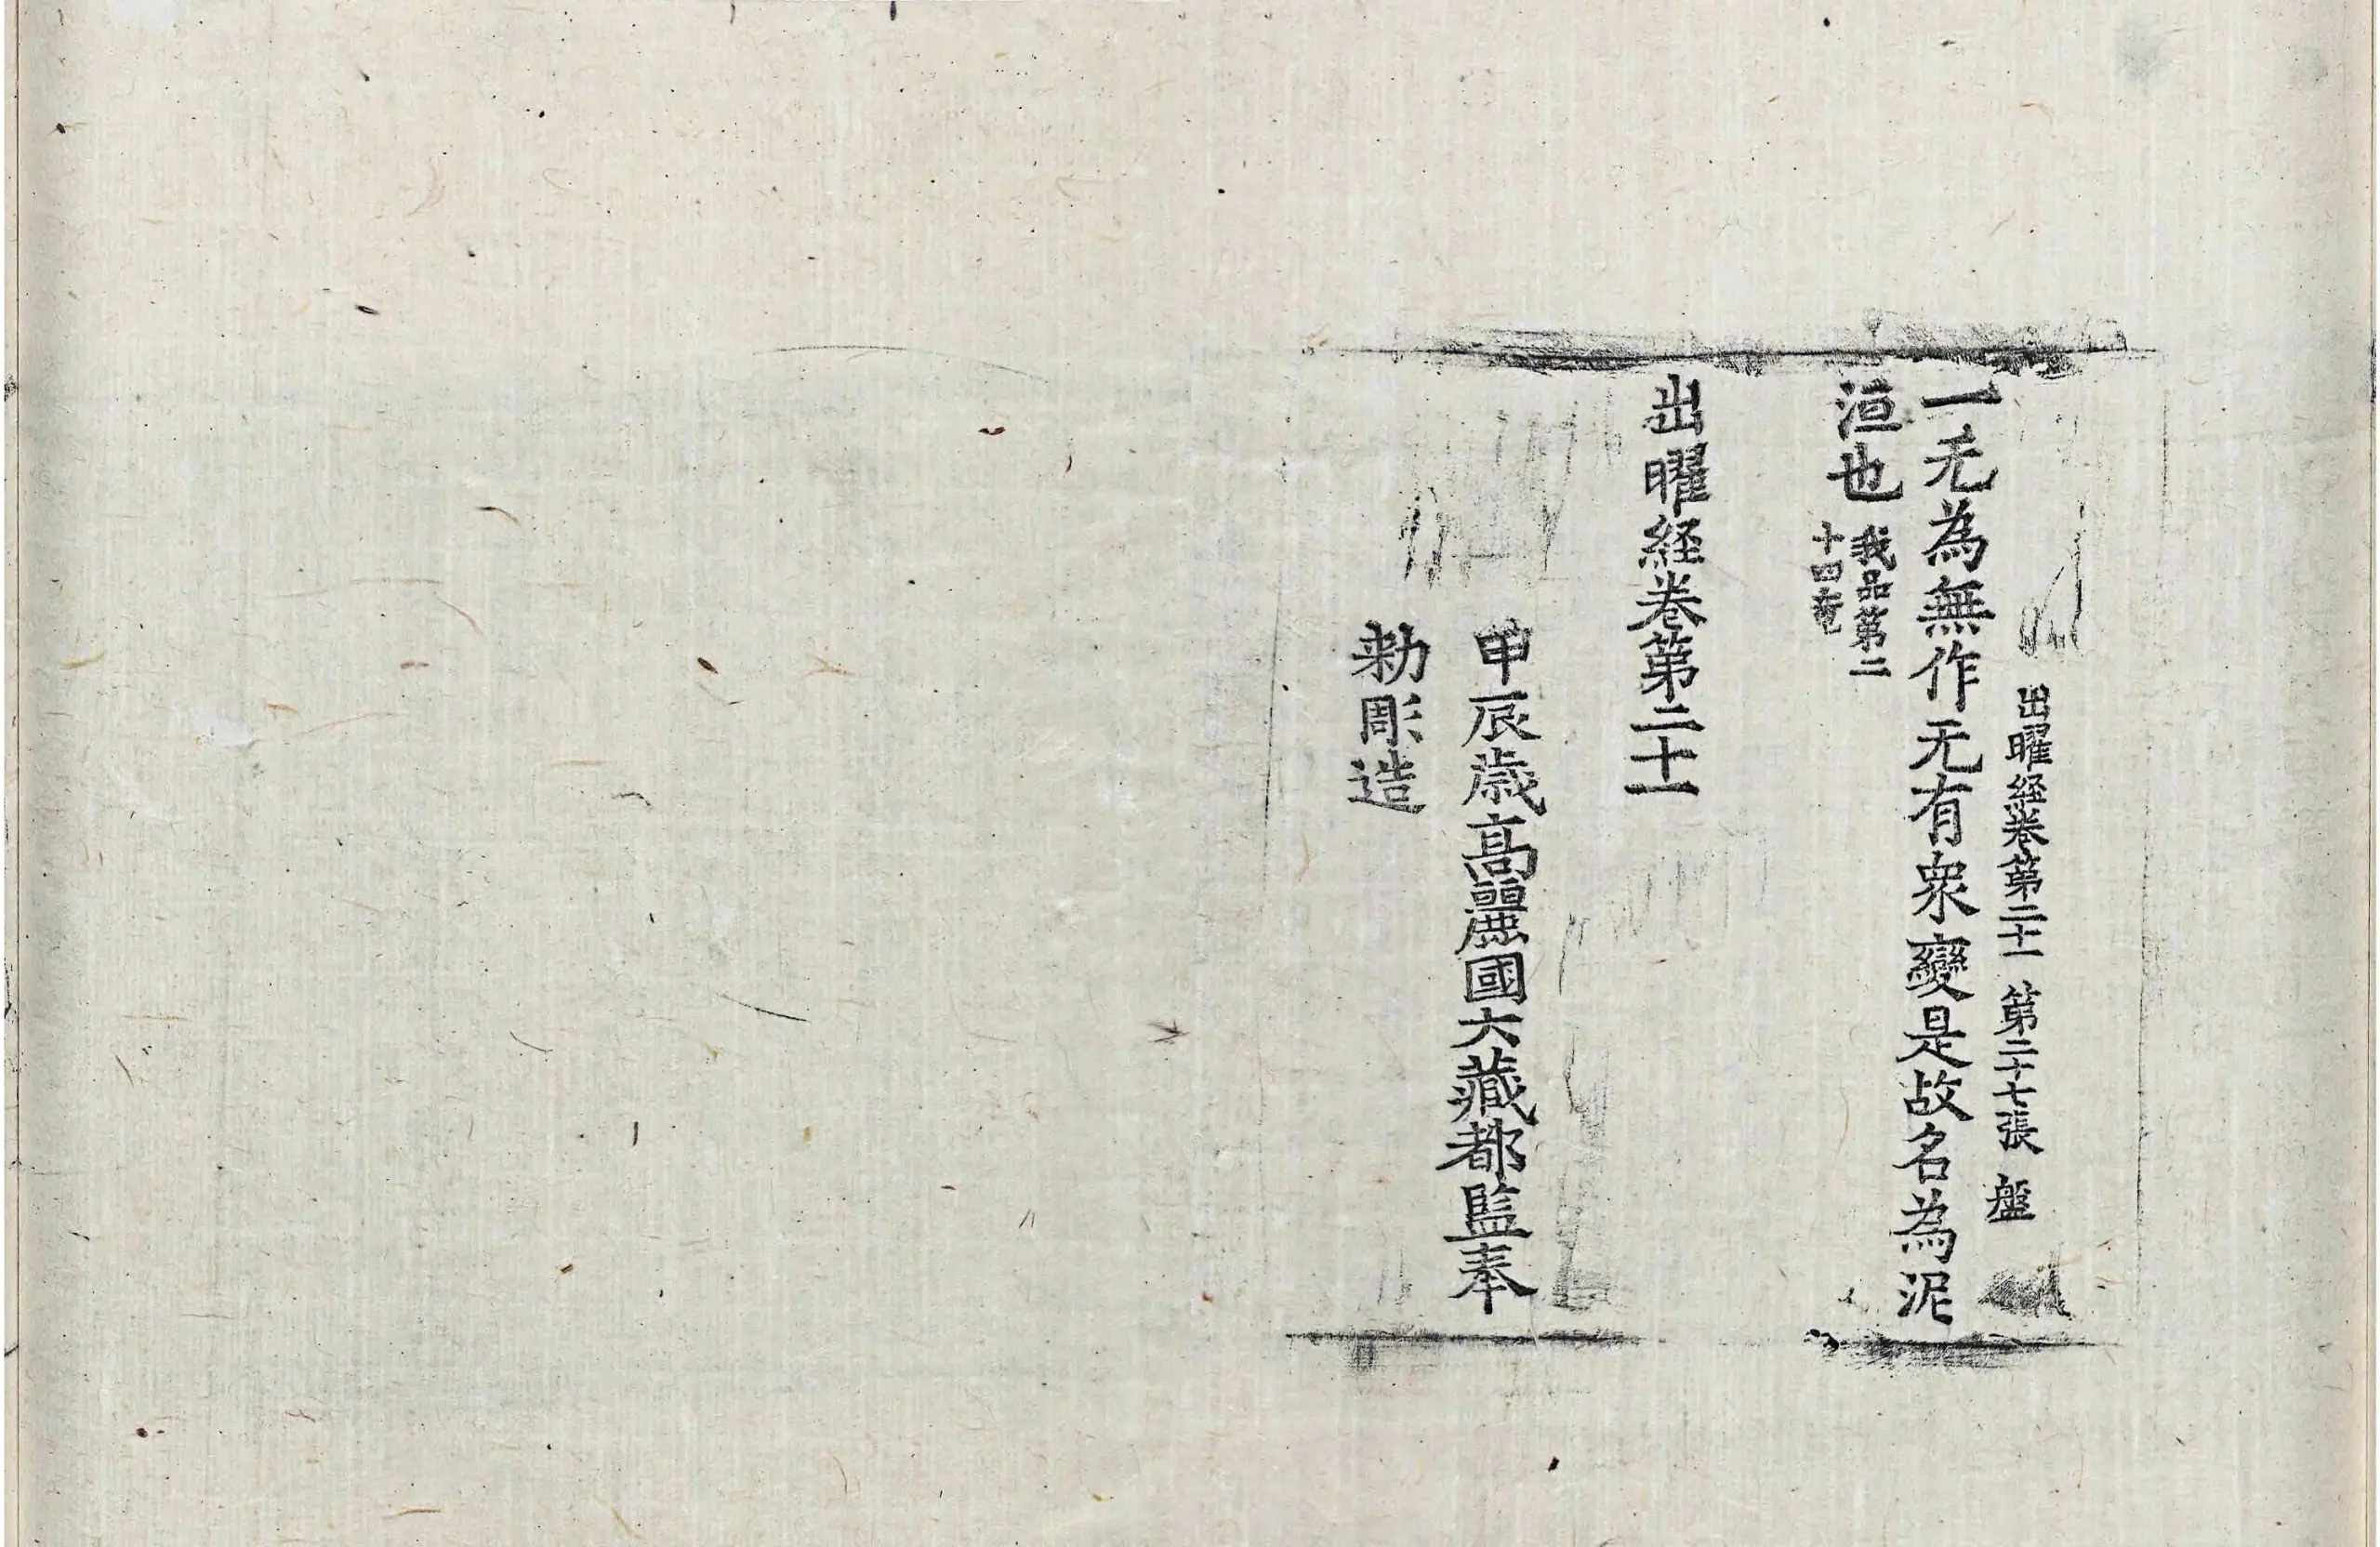 出曜経卷第二十一 第二十七張 盤
一无為無作无有衆變是故名為泥
洹也 我品第二
十四竟
出曜経卷第二十一
甲辰歳高麗國大藏都監奉
勅彫造